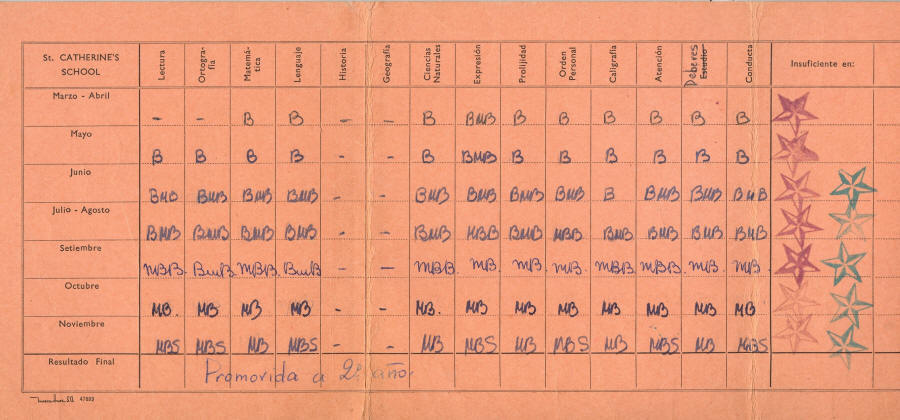 St. CATHERINE'S SCHOOL Lectura Ortogra-fía Matemá-tica Lenguaje Historia Geografía Ciencias Naturales Expresión Prolijidad Orden Personal Caligrafía Atención Deberes Estudio Conducta Insuficiente en:
Marzo - Abril - - B B - - B BMB B B B B B B
Mayo B B B B - - B BMB B B B B B B
Junio BMB BMB BMB BMB - - BMB BMB BMB BMB B BMB BMB BMB
Julio - Agosto BMB BMB BMB BMB - - BMB MBB BMB MBB BMB BMB BMB BMB
Setiembre MBB. BMB MBB. BMB - - MBB. MB. MB. MB. MBB MBB. MB. MB
Octubre MB. MB MB MB - - MB. MB MB MB MB MB MB MB
Noviembre MBS MBS MB MBS - - MB MBS MB MBS MB MBS MB MBS
Resultado Final Promovida a 2º año.
47693